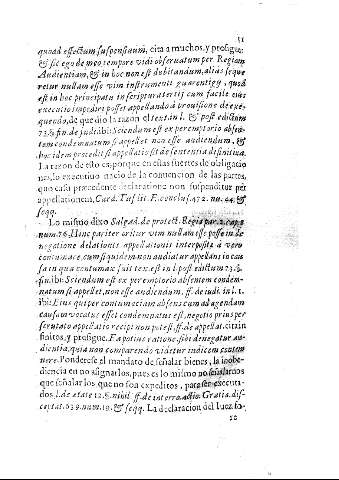 11
quoad effectum suspensiuum, cita a muchos, y prosigue:
& sic ego de meo tempore vidi obseruatum per Regiam
Audientiam, & in hoc non est dubitandum, aliàs seque
retur nullam esse vim instrumenti guarentigij, quod
est in hoc principatu in scriptura tertij cum facile eius
executio impediri posset appellando à prouisione de exe-
quendo, de que dio la razon el text. in l. & post edictum
73. § fin. de iud. ibi: Sciendum est ex peremptorio absen-
tem condemnatum si appellet non esse audiendum, &
hoc idem procedit si appellatio sit à sententia difinitiua.
La razon de esto es, porque en estas suertes de obligacio
nes, lo executiuo nacio de la conuencion de las partes,
que casu præcedente declaratione non suspenditur per
appellationem, Card. Tus. lit. E. conclus. 472. nu. 44. &
seqq.
Lo mismo dixo Salgad. de protect. Regia par. 2. cap.
num. 76. Hinc pariter oritur vim nullam esse posse in de
negatione delationis appellationis interpositæ à vero
contumace, cum siquidem non audiatur appellans in cau
sa in qua contumax fuit tex. est in l. post edictum 73. §.
fin. ibi: Sciendum est ex peremptorio absentem condem-
natum si appellet, non esse audiendum. ff. de iudi. in l. 1.
ibi: Eius qui per contumaciam absens cum ad agendam
causam vocatus esset condemnatus est, negotio prius per
scrutato appellatio recipi non potest. ff. de appellat. citan
finitos, y prosigue. Ea potius ratione sibi denegatur au-
dientia, quia non comparendo videtur iudicem contem
nere. Ponderese el mandato de señalar bienes, la inobe-
diencia en no asignarlos, pues es lo mismo no señalarlos
que señalar los que no son expeditos, para ser executa-
dos, l. de ætate 12. §. nihil ff. de interr. actio. Gratia. dis-
ceptat. 639. num. 19. & seqq. La declaracion del Iuez so-